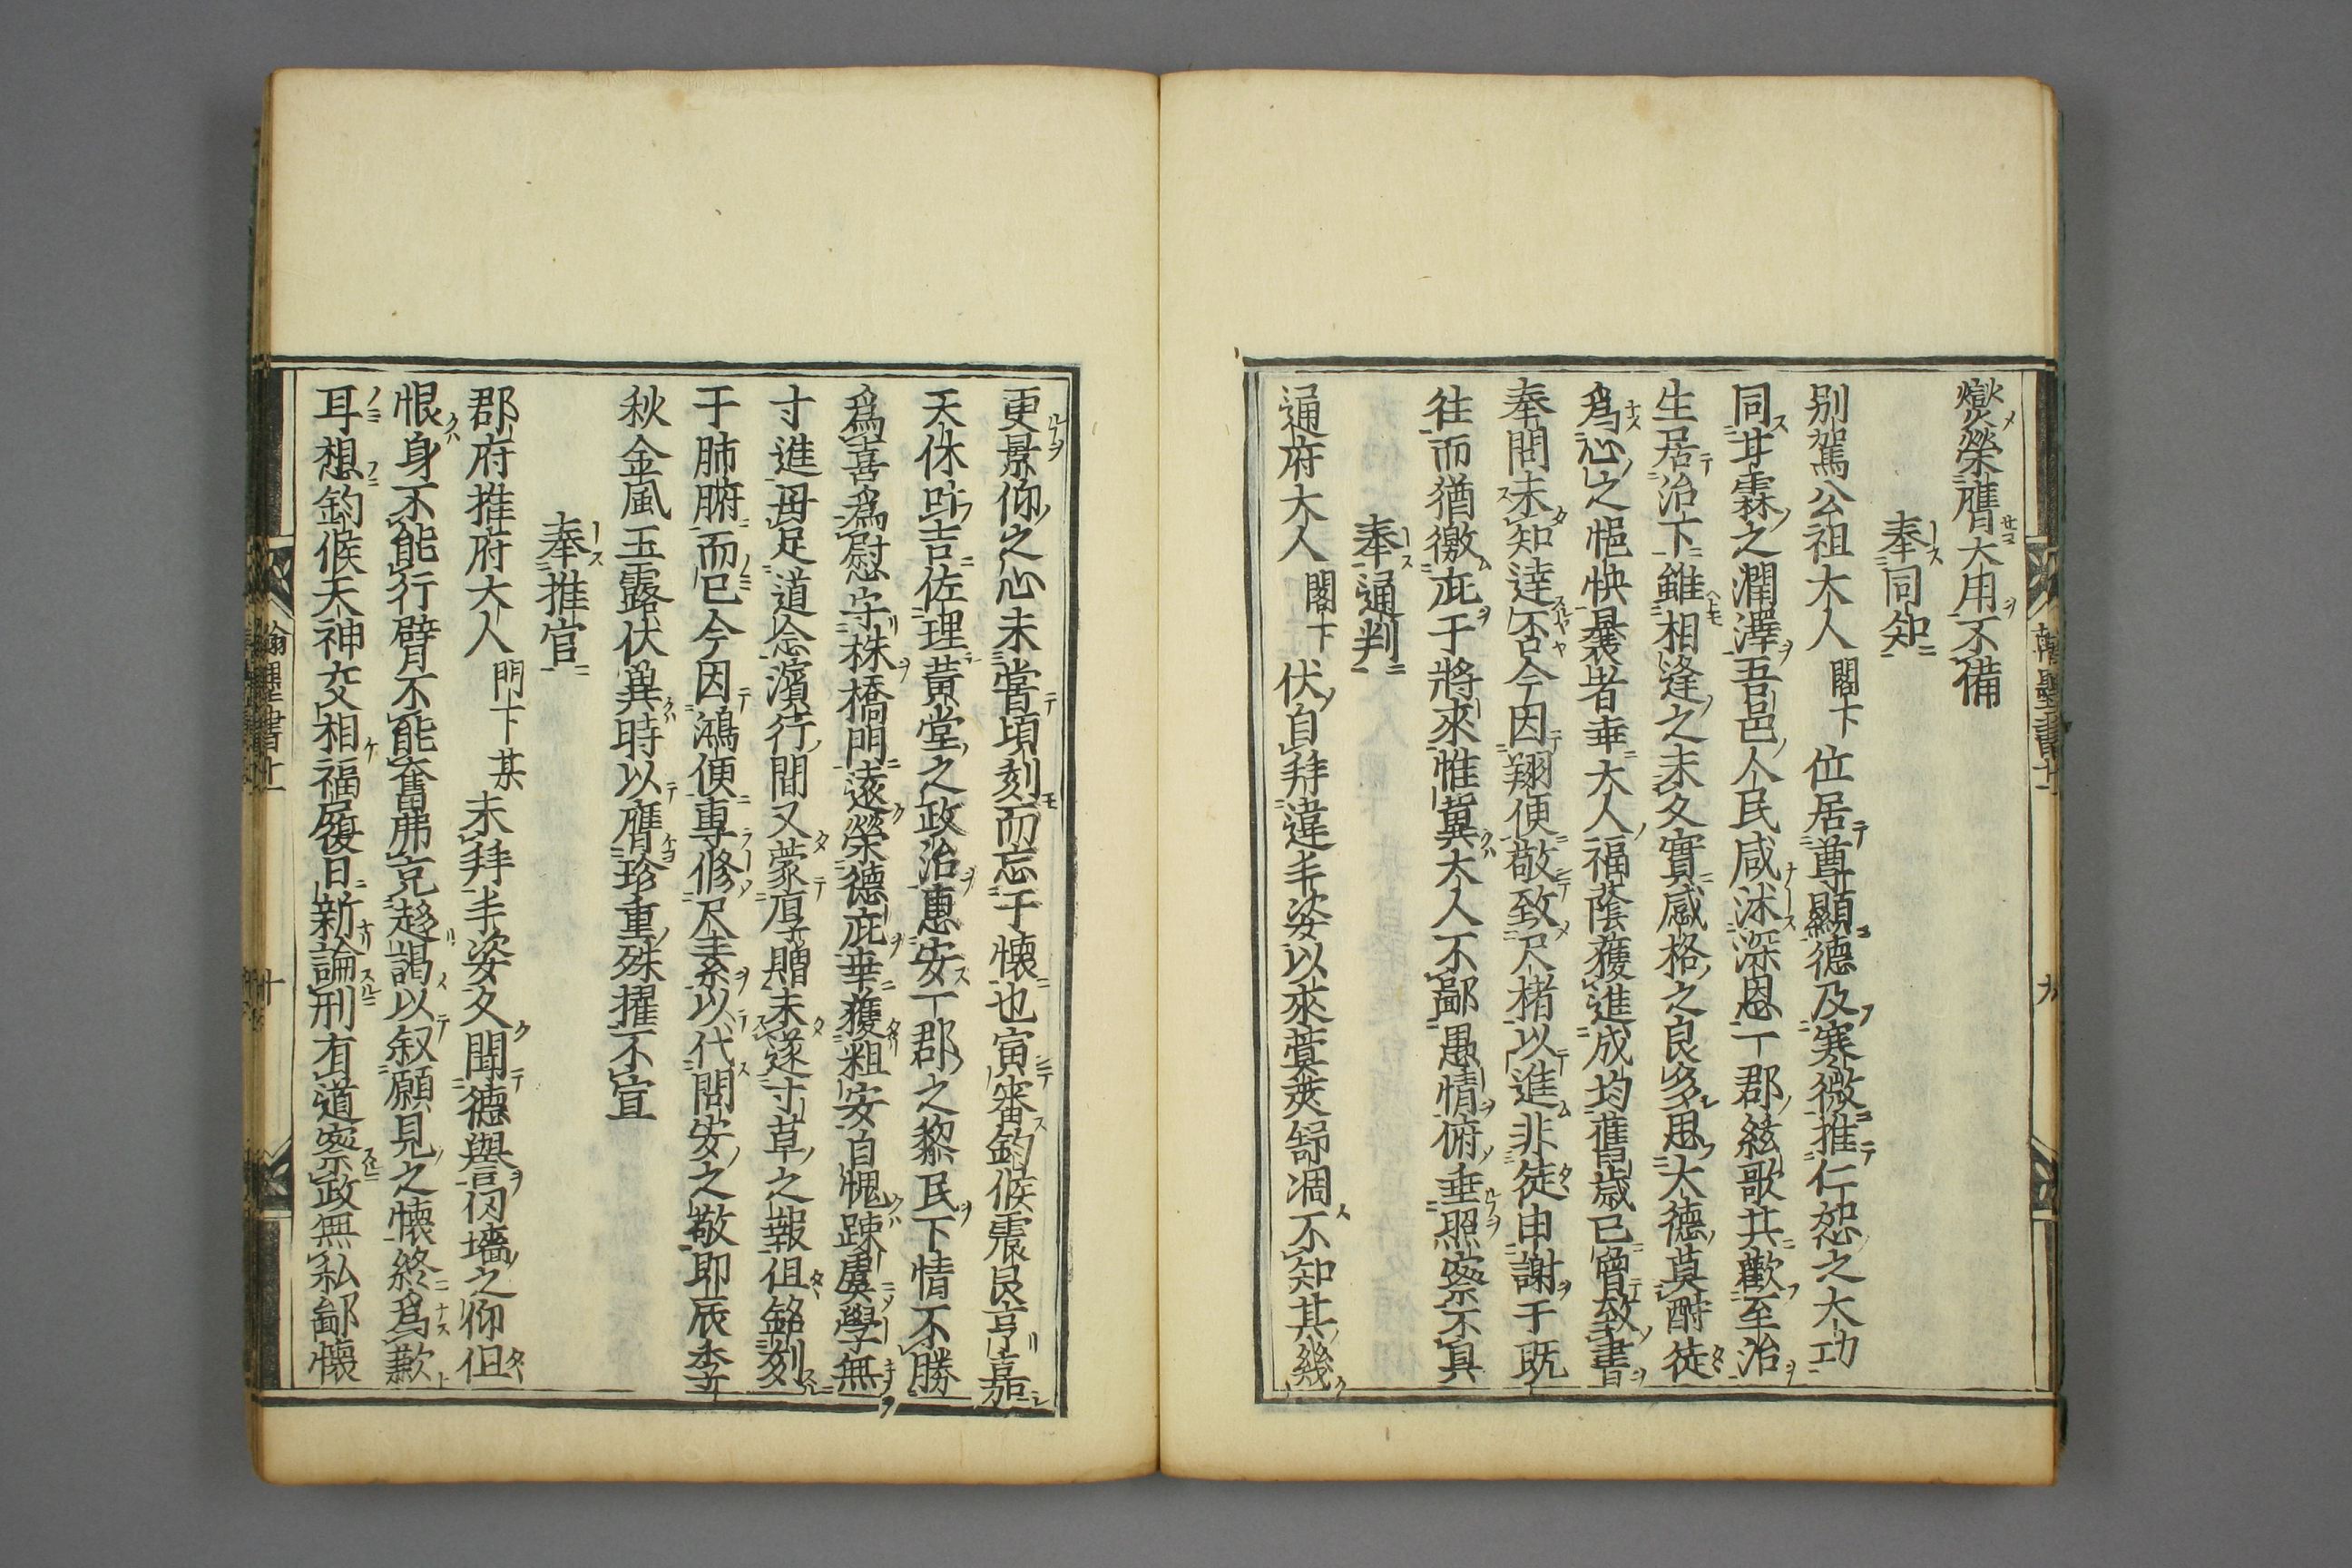 燮榮膺大用不備
奉同知
別駕公祖大人閣下位居尊顯德及寒微推仁恕之大功
同甘霖之潤澤吾邑人民咸沐深恩一郡絃歌共歡至治
生居治下雖相逢之未久實感格之良多思大德莫酧徒
爲心之悒怏曩者垂大人福蔭獲進成均舊歲已曾致書
奉問未知達否今因翔便敬致尺楮以進非徒申謝于既
往而猶徼庇于將來惟冀大人不鄙愚情俯垂照察不具
奉通判
通府大人閣下伏自拜違丰姿以來蓂莢舒凋不知其幾
更景仰之心未嘗頃刻而忘于懷也寅審鈞候震艮亨嘉
天休吁吉佐理黃堂之政治惠安一郡之黎民下情不勝
爲喜爲慰守株橋門遠榮德庇垂獲粗安自愧踈虞學無
寸進毋足道念濱行間又蒙厚贈未遂寸草之報但銘刻
于肺腑而已今因鴻便專修尺素以代問安之敬耶辰季
秋金風玉露伏兾時以膺珍重殊擢不宣
奉推官
郡府推府大人門下某未拜丰姿久聞德譽仞墻之仰但
恨身不能行臂不能奮弗克趍謁以叙願見之懷終爲歉
耳想鈞候天神交相福履日新論刑有道察政無私鄙懷
翰墨書十
九
翰墨書十
十